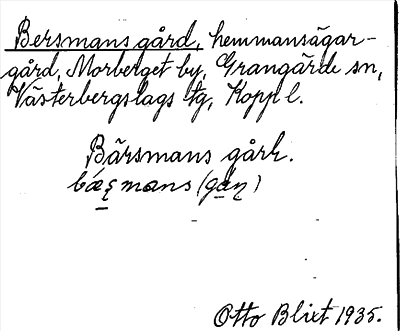 Bersmans gård, hemmansägar-
gård, Morberget by, Grangärde sn,
Västerbergslags tg, Kopp l.
Bärsmans gård.
Otto Blixt 1935.